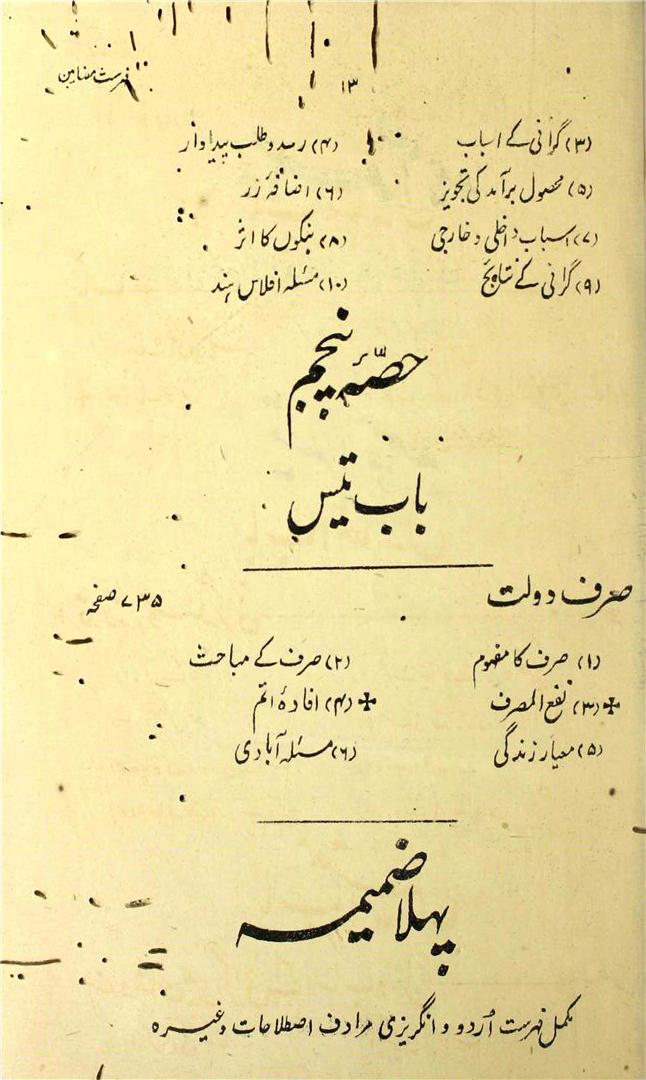 ۱۳ فہرست مضامین
(۳) گرانی کے اسباب (۴) رسد و طلب پیداوار
(۵) محصول برآمد کی تجویز (۶) اضافۂ زر
(۷) اسباب داخلی و خارجی (۸) بنکوں کا اثر
(۹) گرانی کے نتایج (۱۰) مسئلہ افلاس ہند
حصّۂ پنجم
باب تیس
صرف دولت ۷۳۵ صفحہ
(۱) صرف کا مفہوم (۲) صرف کے مباحث
✠ (۳) نفع المصرف ✠ (۴) افادۂ اتم
(۵) معیار زندگی (۶) مسئلہ آبادی
پہلا ضمیمہ
مکمل فہرست اُردو و انگریزی مرادف اصطلاحات وغیرہ